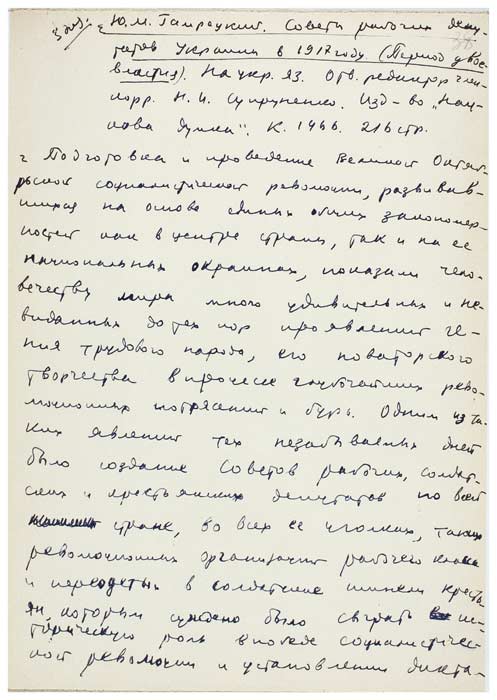 Ю. М. Гамрецкий. Советы рабочих депу-
татов Украины в 1917 году. (Период двое-
властия). На укр. яз. Отв. редактор член-
корр. Н. И. Супруненко. Изд-во „Нау-
кова думка". К. 1966. 216 стр.
Подготовка и проведение Великой Октяб-
рьской социалистической революции, развивав-
шихся на основе единых общих закономер-
ностей как в центре страны, так и на ее
национальных окраинах, показали чело-
вечеству мира много удивительных и не-
виданных до тех пор проявлений ге-
ния трудового народа, его новаторского
творчества в процессе глубочайших рево-
люционных потрясений и бурь. Одним из та-
ких явлений тех незабываемых дней
было создание Советов рабочих, солдат-
ских и крестьянских депутатов по всей
стране, во всех ее уголках, таких
революционных организаций рабочего класса
и переодетых в солдатские шинели кресть
ян, которым суждено было сыграть ис-
торическую роль в победе социалистичес-
кой революции и установлении дикта-